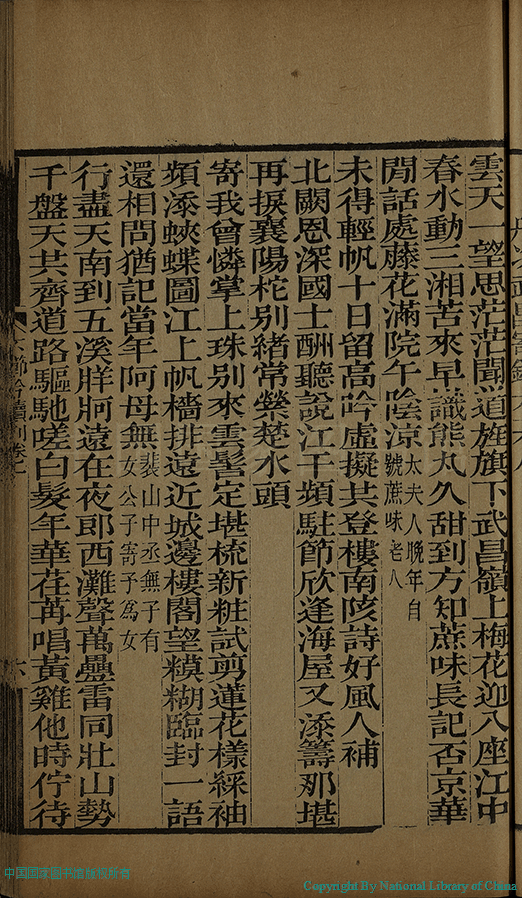 雲天一望思茫茫聞道旌旗下武昌嶺上梅花迎八座江中
春水動三湘苦來早識熊丸久甜到方知蔗味長記否京華
閒話處藤花滿院午陰涼太夫人晚年自
號蔗味老人
未得輕帆十日留高吟虛擬共登樓南陔詩好風人補
北闕恩深國士酬聽說江干頻駐節欣逢海屋又添籌那堪
再捩襄陽柁別緒常縈楚水頭
寄我曾憐掌上珠別來雲髻定堪梳新粧試剪蓮花樣綵袖
頻添蛺蝶圖江上帆檣排遠近城邊樓閣望糢糊臨封一語
還相問猶記當年阿母無裴山中丞無子有
女公子寄予為女
行盡天南到五溪牂牁遠在夜郎西灘聲萬疊雷同壯山勢
千盤天共齊道路驅馳嗟白髮年華荏苒唱黃雞他時佇待
六
中国国家图书馆版权所有
Copyright By National Library of China